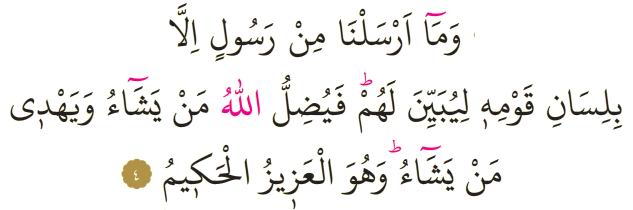 وَمَٓا اَرْسَلْنَا مِنْ رَسُولٍ اِلَّا
بِلِسَانِ قَوْمِه۪ لِيُبَيِّنَ لَهُمْۜ فَيُضِلُّ اللّٰهُ مَنْ يَشَٓاءُ وَيَهْد۪ى
مَنْ يَشَٓاءُۜ وَهُوَ الْعَز۪يزُ الْحَك۪يمُ ٤